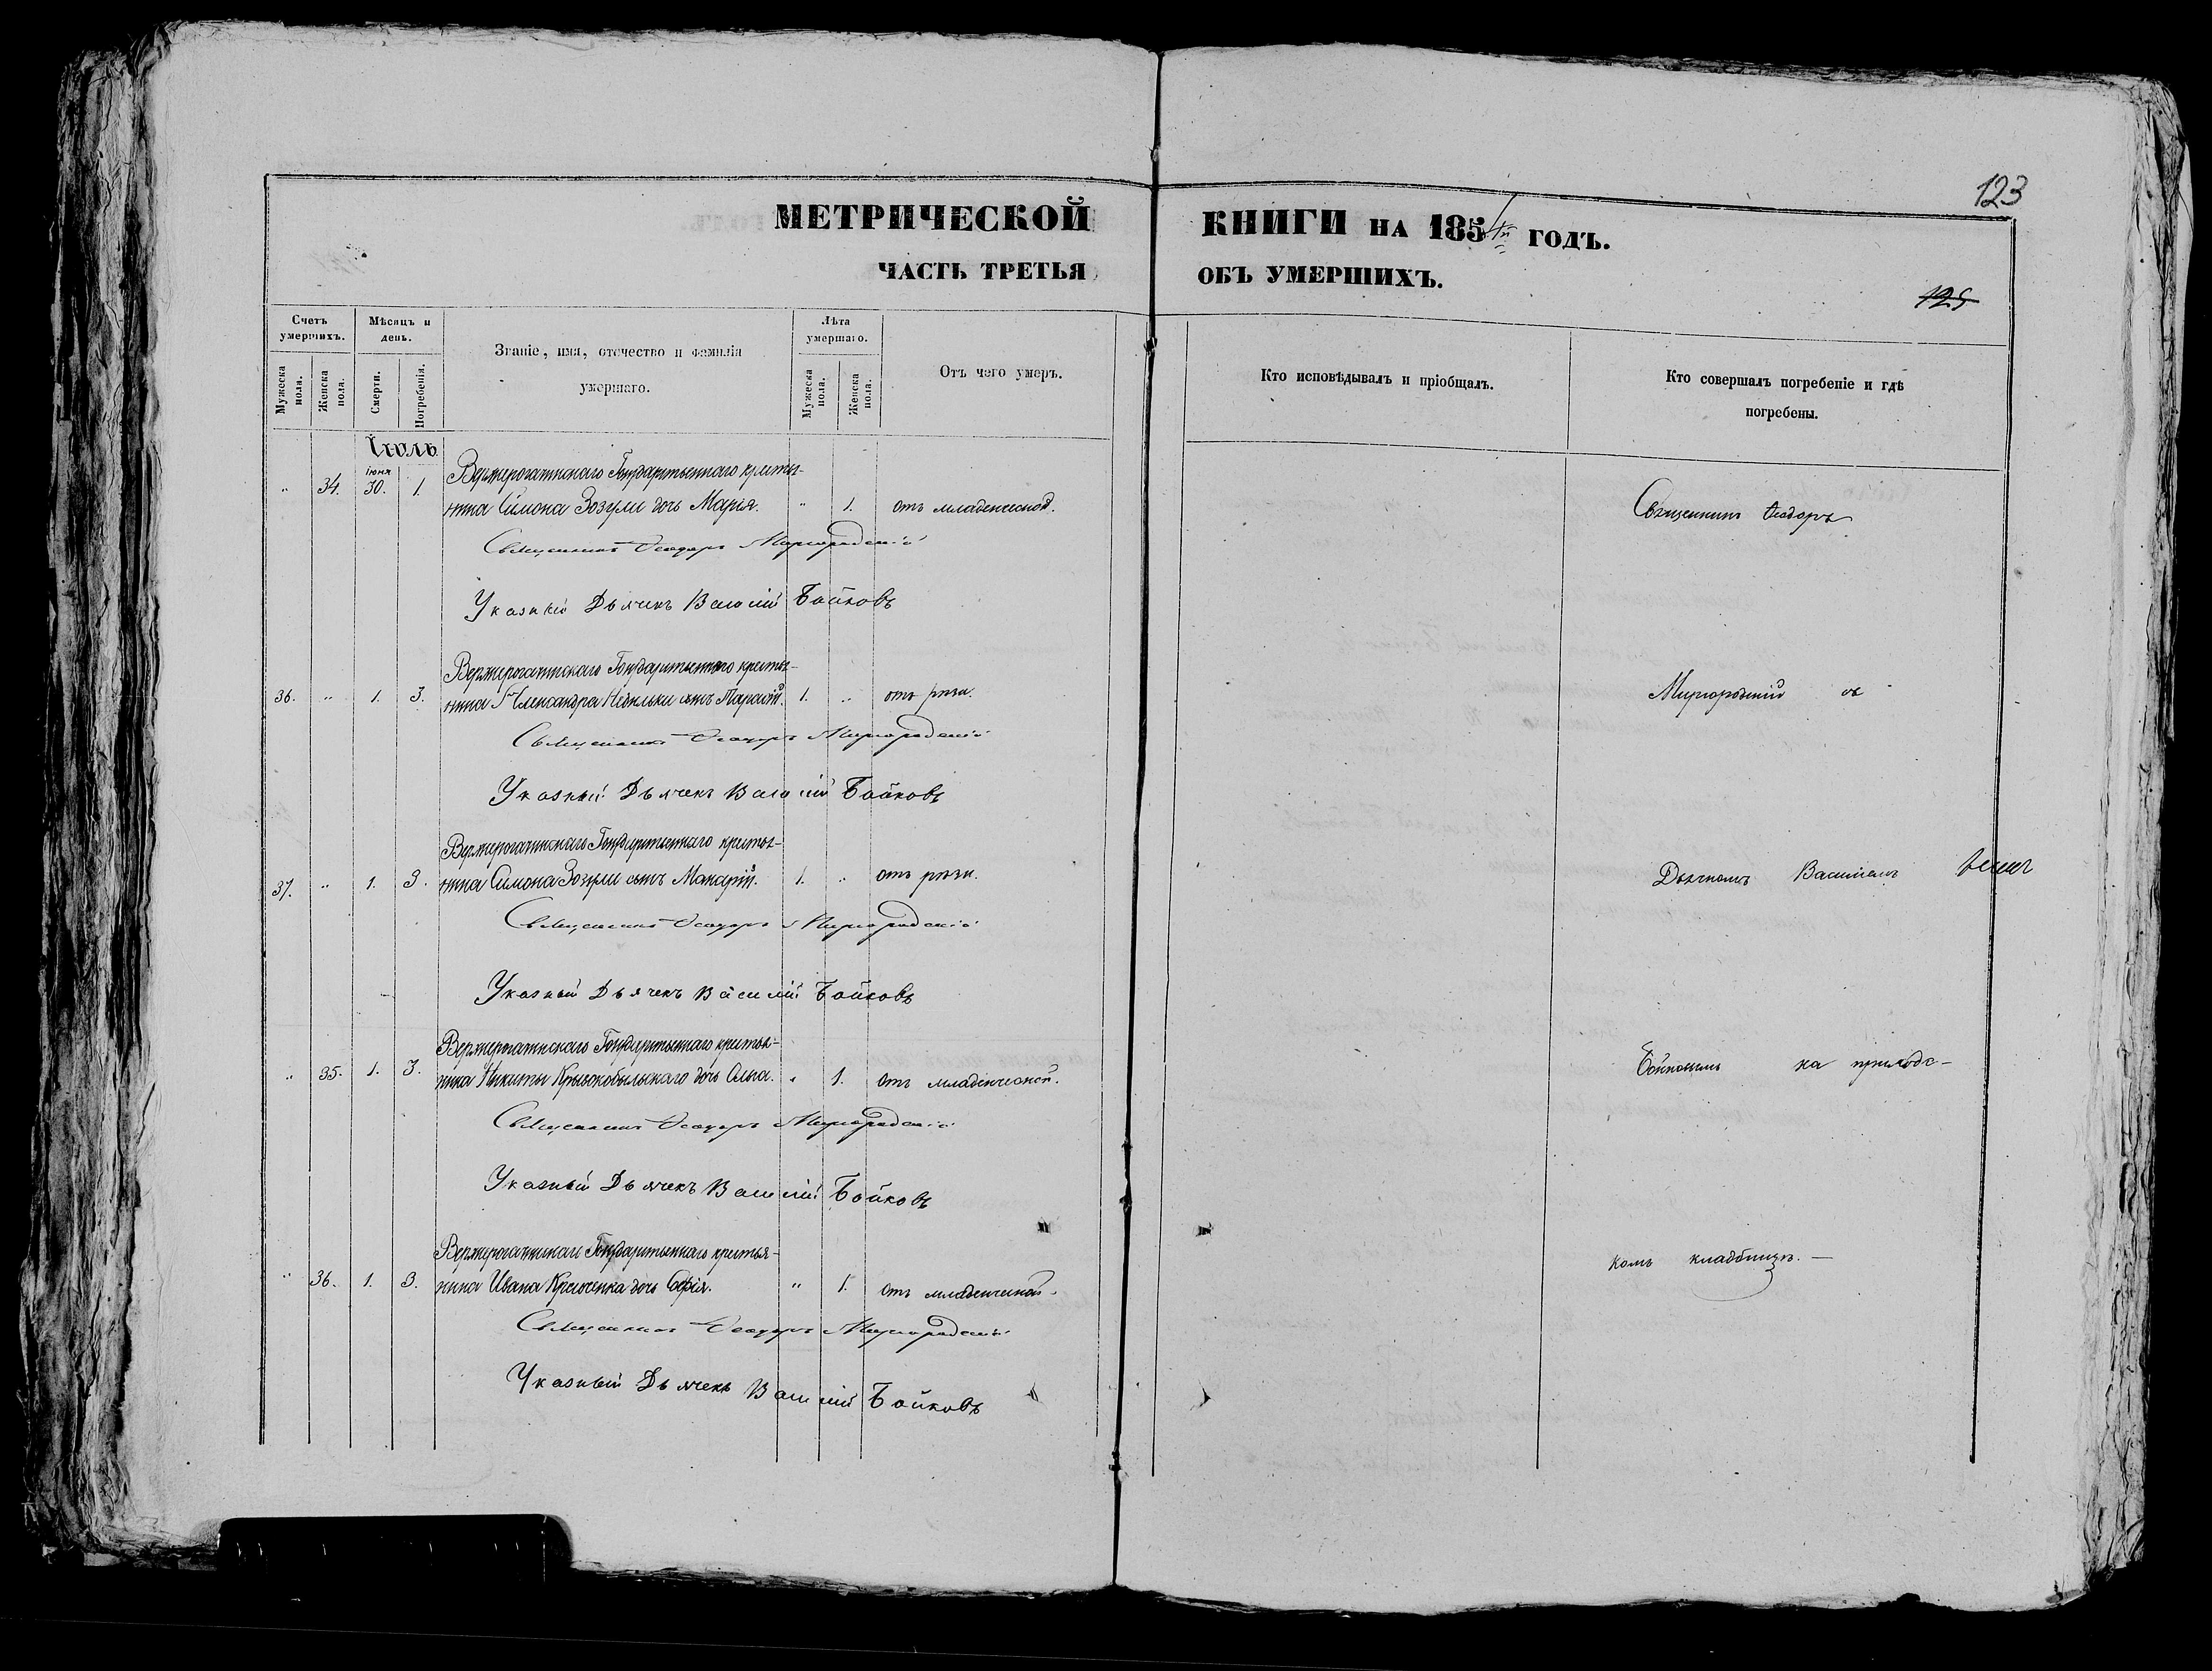 123
МЕТРИЧЕСКОЙ КНИГИ НА 1854й ГОДЪ.
ЧАСТЬ ТРЕТЬЯ ОБЪ УМЕРШИХЪ.
125
Счетъ умершихъ.
Мѣсяцъ и день.
Званіе, имя, отечество и фамилія умершаго.
Лѣта умершаго.
Отъ чего умеръ.
Кто исповѣдывалъ и пріобщалъ.
Кто совершалъ погребеніе и гдѣ погребены.
Мужеска пола.
Женска пола.
Смерти.
Погребенія.
Мужеска пола.
Женска пола.
Іюль
Іюня
Государственнаго крестья-
" 34. 30. 1. нина Симона Зозули дочь Марья. " 1. отъ младенческой.
Священникъ Ѳеодоръ
Священникъ Ѳеодоръ Миргородскій
Указный Дьячекъ Василій Бойковъ
Государственнаго крестья-
36. " 1. 3. нина Александра сынъ 1. " отъ рези.
Миргородскій съ
Священникъ Ѳеодоръ Миргородскій
Указный Дьячекъ Василій Бойковъ
Государственнаго крестья-
37. " 1. 3. нина Симона Зозули сынъ Макарій. 1. " отъ рези.
Дьячкомъ Василіемъ
Священникъ Ѳеодоръ Миргородскій
Указный Дьячекъ Василій Бойковъ
Государственнаго крестья-
" 35. 1. 3. нина Никиты Кривокобыльскаго дочь Ольга. " 1. отъ младенческой.
Бойковымъ на приходс-
Священникъ Ѳеодоръ Миргородскій
Указный Дьячекъ Василій Бойковъ
Государственнаго крестья-
" 36. 1. 3. нина Ивана дочь Софія. " 1. отъ младенческой.
комъ кладбищѣ. —
Священникъ Ѳеодоръ Миргородскій
Указный Дьячекъ Василій Бойковъ